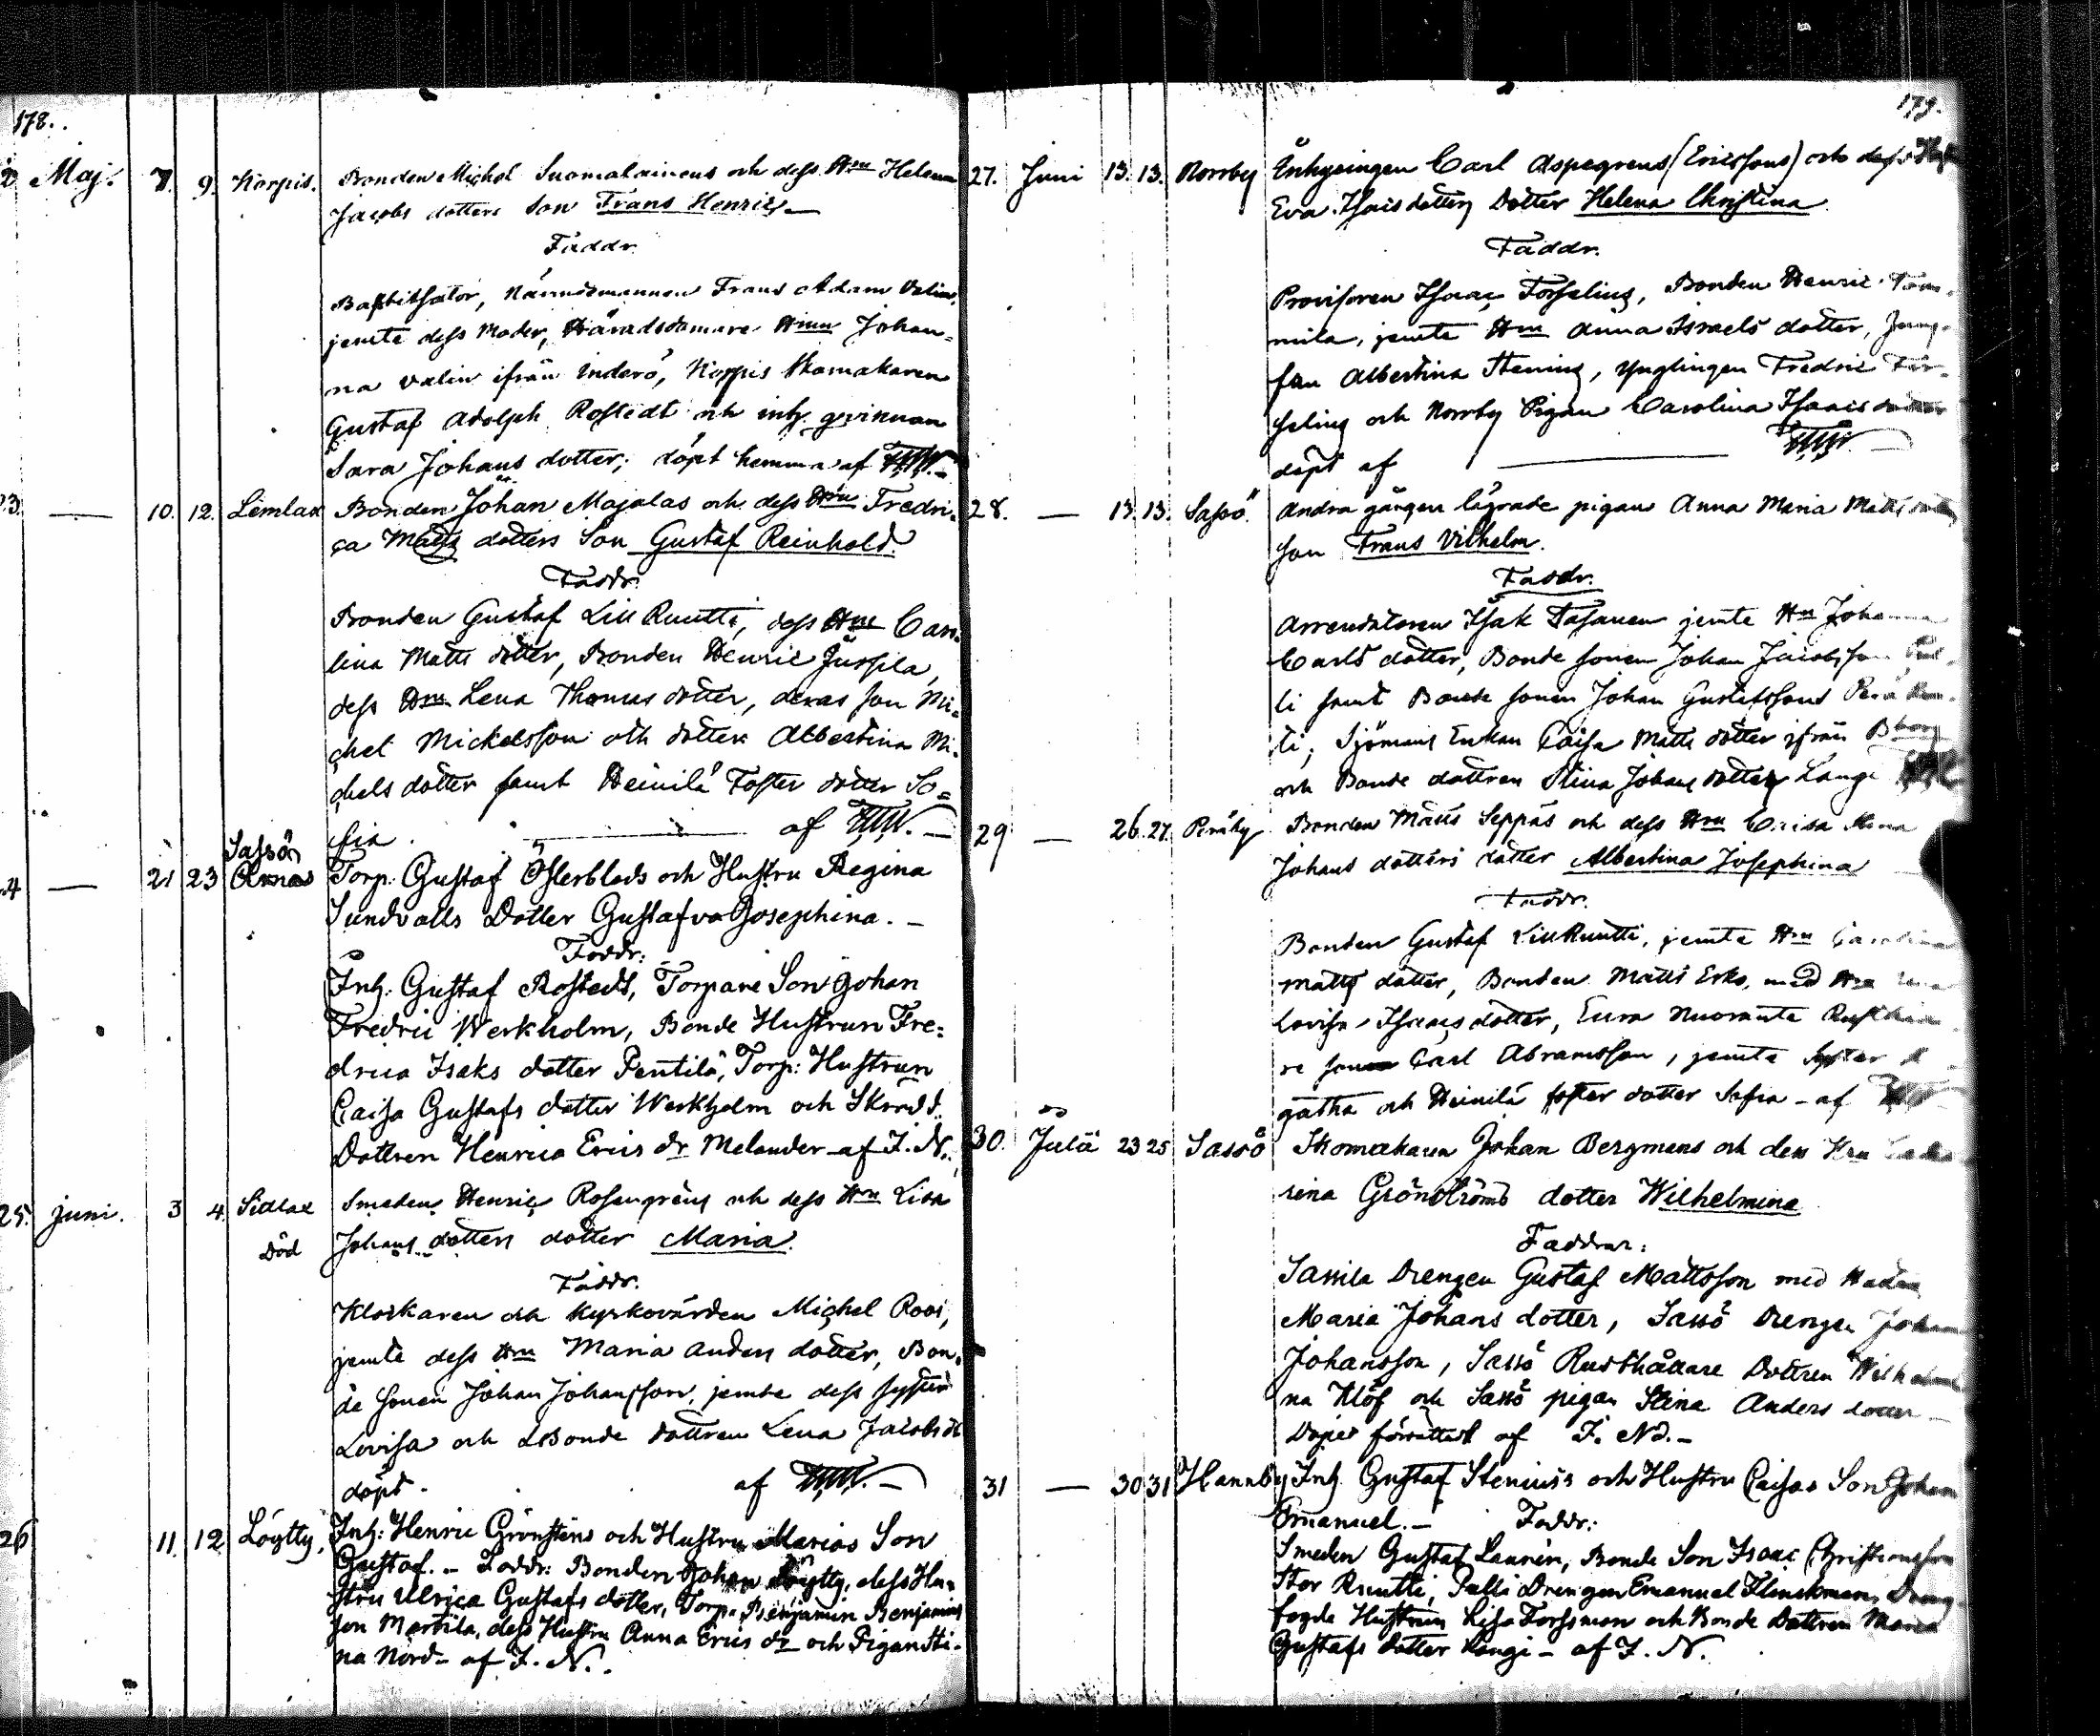 178.
Maj. 7. 9. Korpis. Bonden Michel Suomalainens och dess Hru Helena
Jacobs dotters Son Frans Henric
Faddr.
Nämndemannen Frans Adam Valin,
jemte dess Moder, Häradsdomare Hrun Johan=
na Valin ifrån Inderö, Korpis Skomakaren
Gustaf Adolph Rostedt och inh. qvinnan
Sara Johans dotter; döpt hemma af
23. — 10. 12. Lemlax Bonden Johan Majalas och dess Hru Fredri=
ca Matts dotters Son Gustaf Reinhold.
Faddr.
Bonden Gustaf Lill Ruutti, dess Hru Caro=
lina Matts dotter, Bonden Henric Jussila,
dess Hru Lena Thomas dotter, deras son Mi=
chel Mickelsson och dotter Albertina Mi=
chels dotter samt Heinilä Foster dotter So=
fia. af
24 — 21 23 Sassön Torp: Gustaf Österblads och Hustru Regina
Sundvalls Dotter Gustafva Josephina. —
Faddr:
Inh: Gustaf Rostedt, Torpare Son Johan
Fredric Werkholm, Bonde Hustrun Fre=
drica Isaks dotter Pentilä, Torp: Hustrun
Caisa Gustafs dotter Werkholm och Skrädd.
Dottren Henrica Erics dr Melander — af F. N.
25. juni. 3 4. Sidlax Smeden Henric Rosengréns och dess Hru Lisa
Död Johans dotters dotter Maria.
Faddr.
Klockaren och Kyrkovärden Michel Roos,
jemte dess Hru Maria Anders dotter, Bon=
de sonen Johan Johansson, jemte dess syster
Lovisa och Bonde dottren Lena Jacobs dr
döpt. af
26 11. 12 Löytty, Inh: Henric Grönsténs och Hustru Marias Son
Gustaf. — Faddr: Bonden Johan Löytty, dess Hu=
stru Ulrica Gustafs dotter, Torp. Benjamin Benjamins
son Marttila, dess Hustru Anna Erics dr och Pigan Sti=
na Nord — af F. N.
179.
27. Juni 13. 13. Norrby Inhysingen Carl Aspegrens (Ericssons) och dess
Eva Isacs dotters Dotter Helena Christina
Faddr.
Provisoren Isaac Forselius, Bonden Henric Tom=
mila, jemte Hru Anna Israels dotter, Jung=
frun Albertina Stenius, Ynglingen Fredric For=
selius och Norrby Pigan Carolina Isaacs dotter
döpt af
28. — 13. 13. Sassö. Andra gången lägrade pigan Anna Maria Matts
son Frans Vilhelm.
Faddr.
Arrendatoren Isak Tasanen jemte Hru Johanna
Carls dotter, Bonde sonen Johan Jacobsson
li samt Bonde sonen Johan Gustafssons
ti, Sjömans Enkan Caisa Matts dotter ifrån
och Bonde dottren Stina Johans dotter Langi
29 — 26. 27. Peräky Bonden Matts Seppäs och dess Hru Caisa Stina
Johans dotters dotter Albertina Josephina
Faddr.
Bonden Gustaf Lill Ruutti, jemte Hru Carolina
Matts dotter, Bonden Matts Erko, med Hru
Lovisa Isaacs dotter, Eura Nuoranta Rusthålla=
re sonen Carl Abramsson, jemte syster A=
gatha och Heinilä foster dotter Sofia — af
30. Julii 23 25 Sassö Skomakaren Johan Bergmans och dess Hru Catha
rina Grönströms dotter Wilhelmina
Faddrar:
Sassila Drengen Gustaf Mattsson med
Maria Johans dotter, Sassö Drengen Johan
Johansson, Sassö Rusthållare Dottren Wilhelmi
na Klöf och Sassö pigan Stina Anders dotter —
Dopet förrättadt af F. Nd. —
31 — 30 31 Hannby Inh. Gustaf Steniuss och Hustru Caisas Son Johan
Emanuel. — Faddr:
Smeden Gustaf Laurén, Bonde Son Isaac Christiansson
Stor Ruutti, Pulli Drengen Emanuel Klinckman, Dreng
fogde Hustrun Lisa Forssman och Bonde Dottren Maria
Gustafs dotter Langi — af F. N.